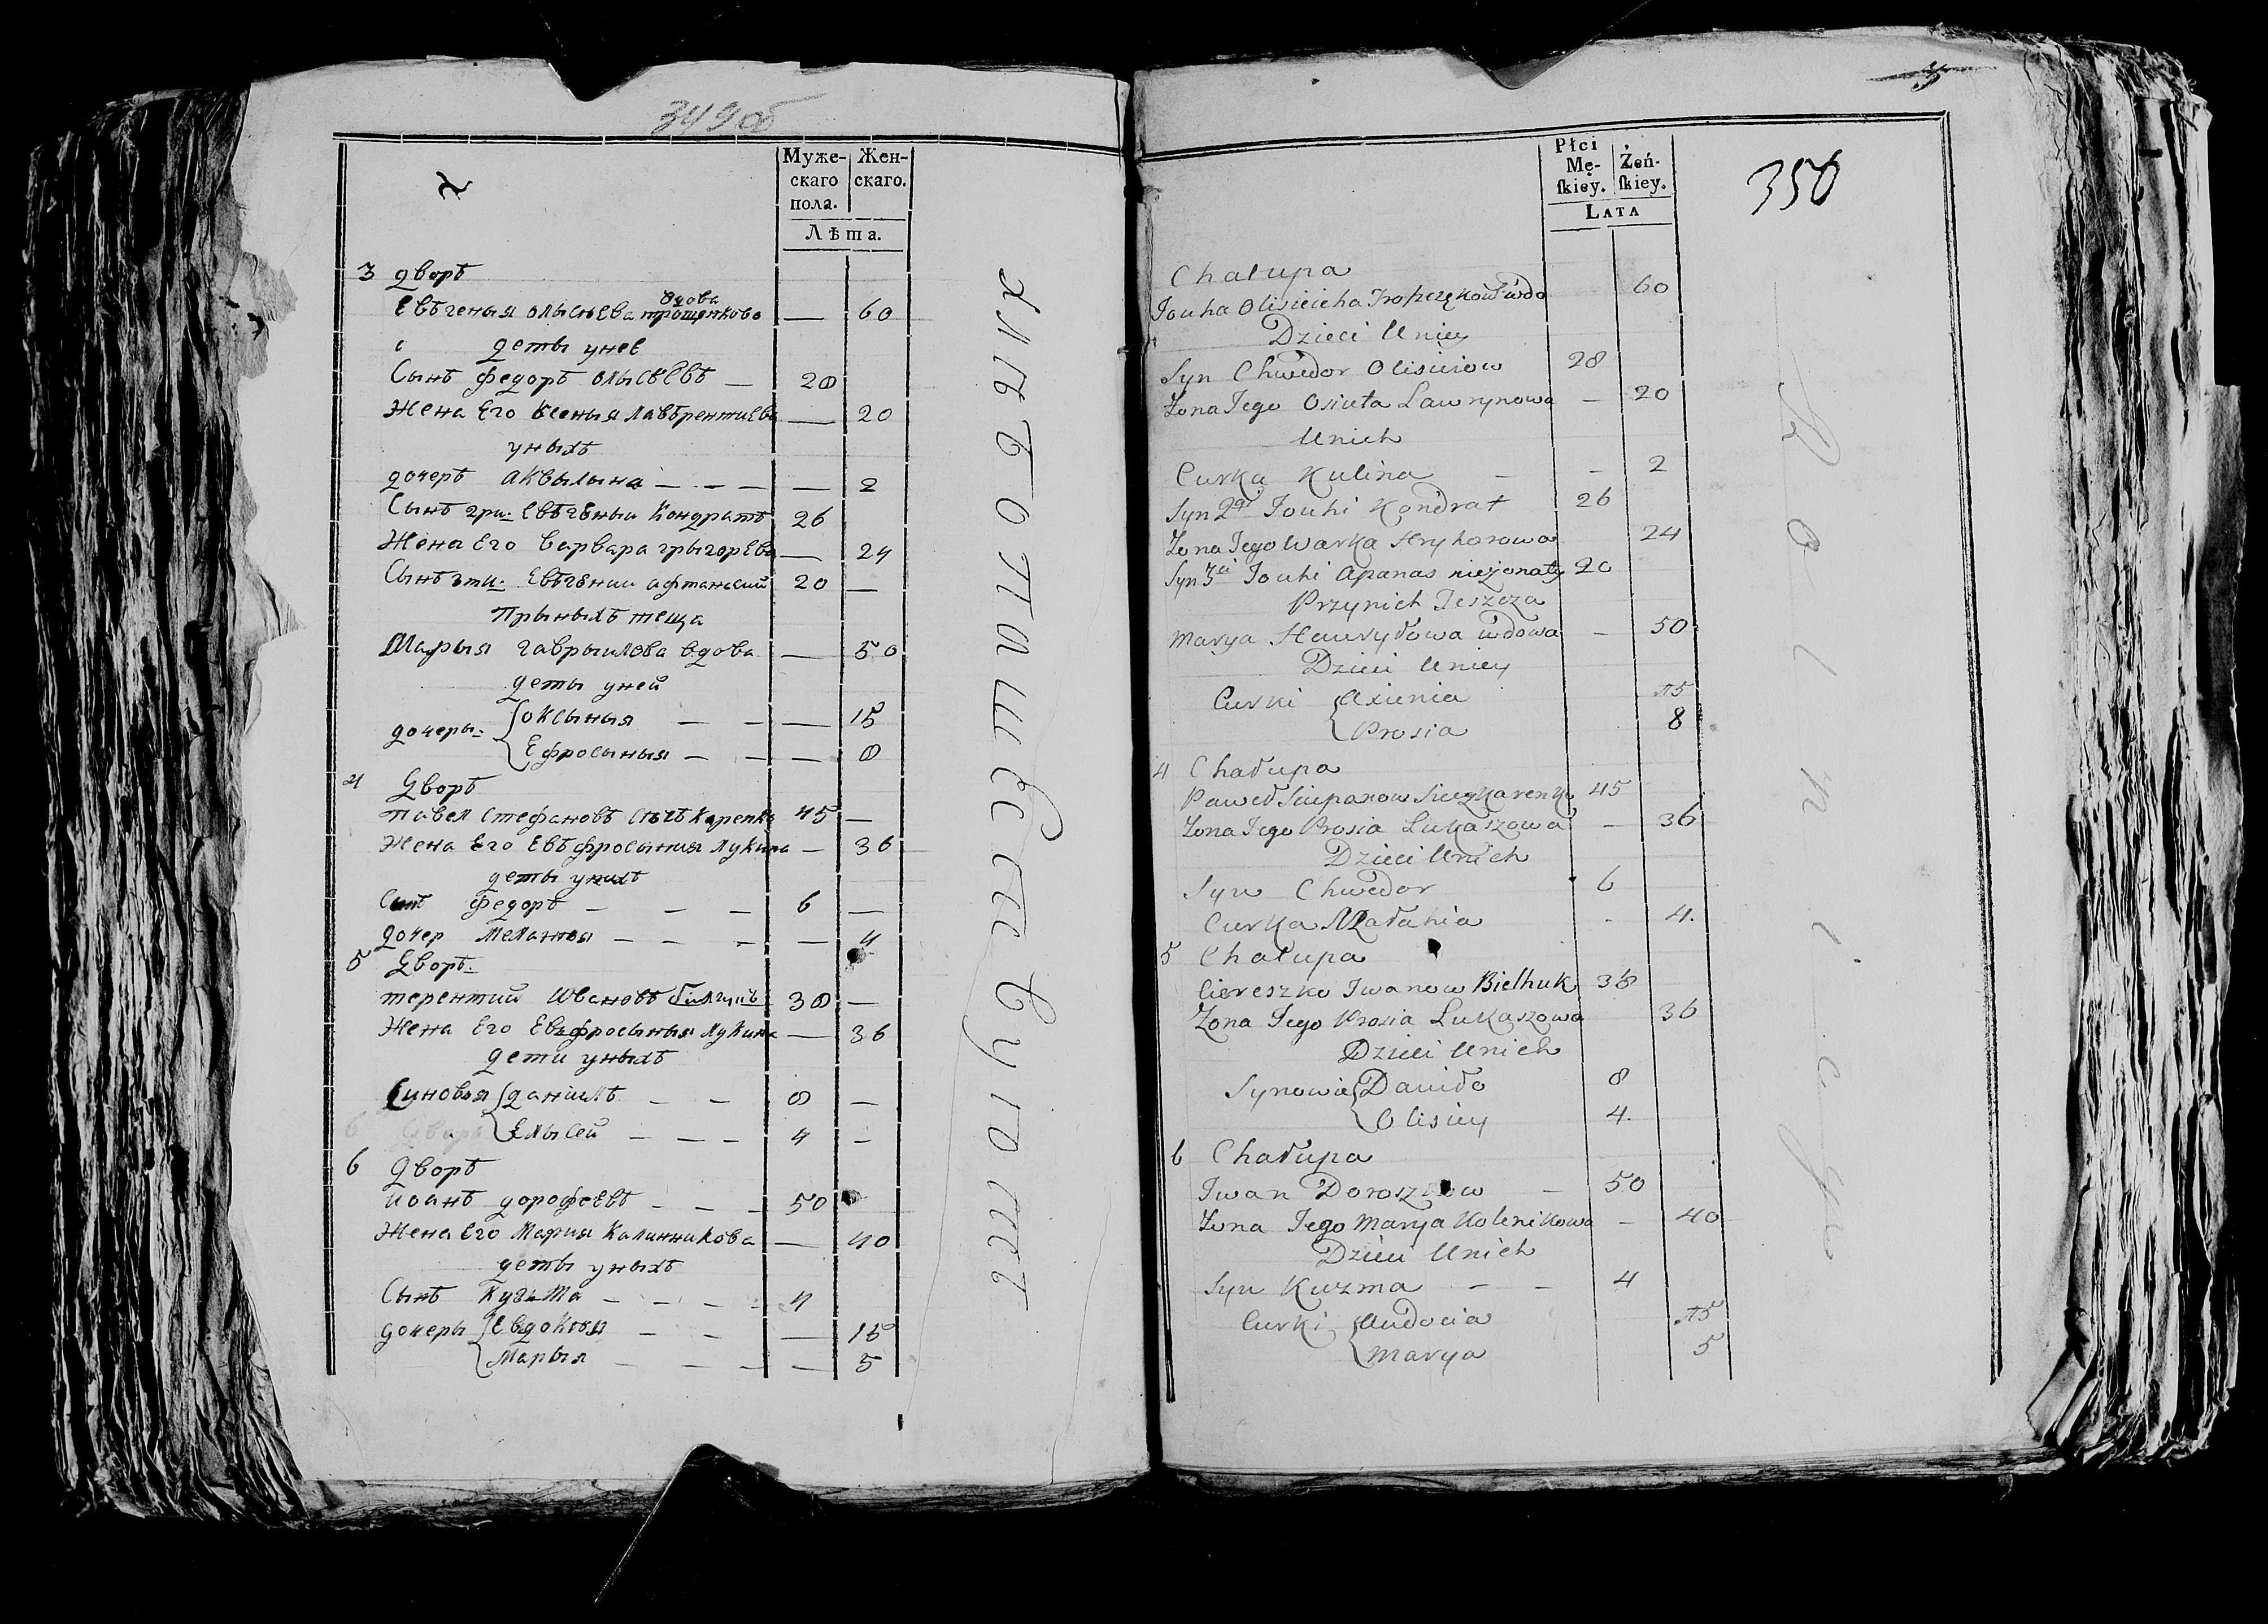 349об
2
Муже-
скаго
пола.
Жен-
скаго.
Лѣта.
3 дворъ
вдова
Евъгенья Олысѣева прощенкова — 60
деты унеѣ
Сынъ Федоръ Олысѣевъ — 28
Жена Его Ксенья Лавѣрентиева — 20
уныхъ
дочеръ Аквылына — — — — 2
Сынъ гри. Евъгѣныи Кондратъ 26
Жена Его Варвара грыгорѣва — 24
Сынъ эти. Евъгѣнии афтанасий 20 —
Прыныхъ теща
Марыя гаврыилова вдова — 50
деты уней
дочеры Оксыныя — — — 15
Ефросыныя — — — 8
4 Дворъ
павел Стефановъ 45 —
Жена Его Евъфросыния Лукина — 36
деты унихъ
Сынъ Федоръ — — — 6 —
Дочер Меланыя — — — — 4
5 Дворъ
терентий Ивановъ 38 —
Жена Его Евъфросыныя Лукина — 36
дети уныхъ
Синовья Данiилъ — — 8 —
Елысей — — — 4 —
6 Дворъ
иоанъ дорофеевъ — — — 50
Жена Его Мария Калинникова — 40
деты уныхъ
Сынъ Кузъма — — — — 4
дочеры Евдокия — — — 15
Марыя — — — — 5
хлѣбопашествуютъ
Płci
Mę-
ſkiey.
Żeń-
ſkiey.
Lata
350
Chałupa
Jouha Olisieicha wdo 60
Dzieci Uniey
Syn Chwedor Olisieiow 28
Żona Jego Osiuta Lawrynowa — 20
Unich
Curka Kulina — — 2
Syn 2gi Jouhi Kondrat 26
Żona Jego Warka Hryhorowa 24
Syn 3ci Jouhi Apanas nieżonaty 20
Przynich Teszcza
Marya Hauryłowa wdowa — 50
Dzieci Uniey
Curki Axienia 15
Prosia 8
4 Chałupa
Paweł Sciepanow Sieczkarenko 45
Żona Jego Prosia Lukaszowa — 36
Dzieci Unich
Syn Chwedor 6
Curka Małania - 4.
5 Chałupa
Ciereszko Iwanow Bielhuk 38
Żona Jego Prosia Lukaszowa 36
Dzieci Unich
Synowie Daniło 8
Olisiey 4.
6 Chałupa
Iwan Doroszkow — 50
Żona Jego Marya Kolenikowa — 40
Dzieci Unich
Syn Kuzma — — 4
Curki Audocia 15
Marya 5
Rolnicy